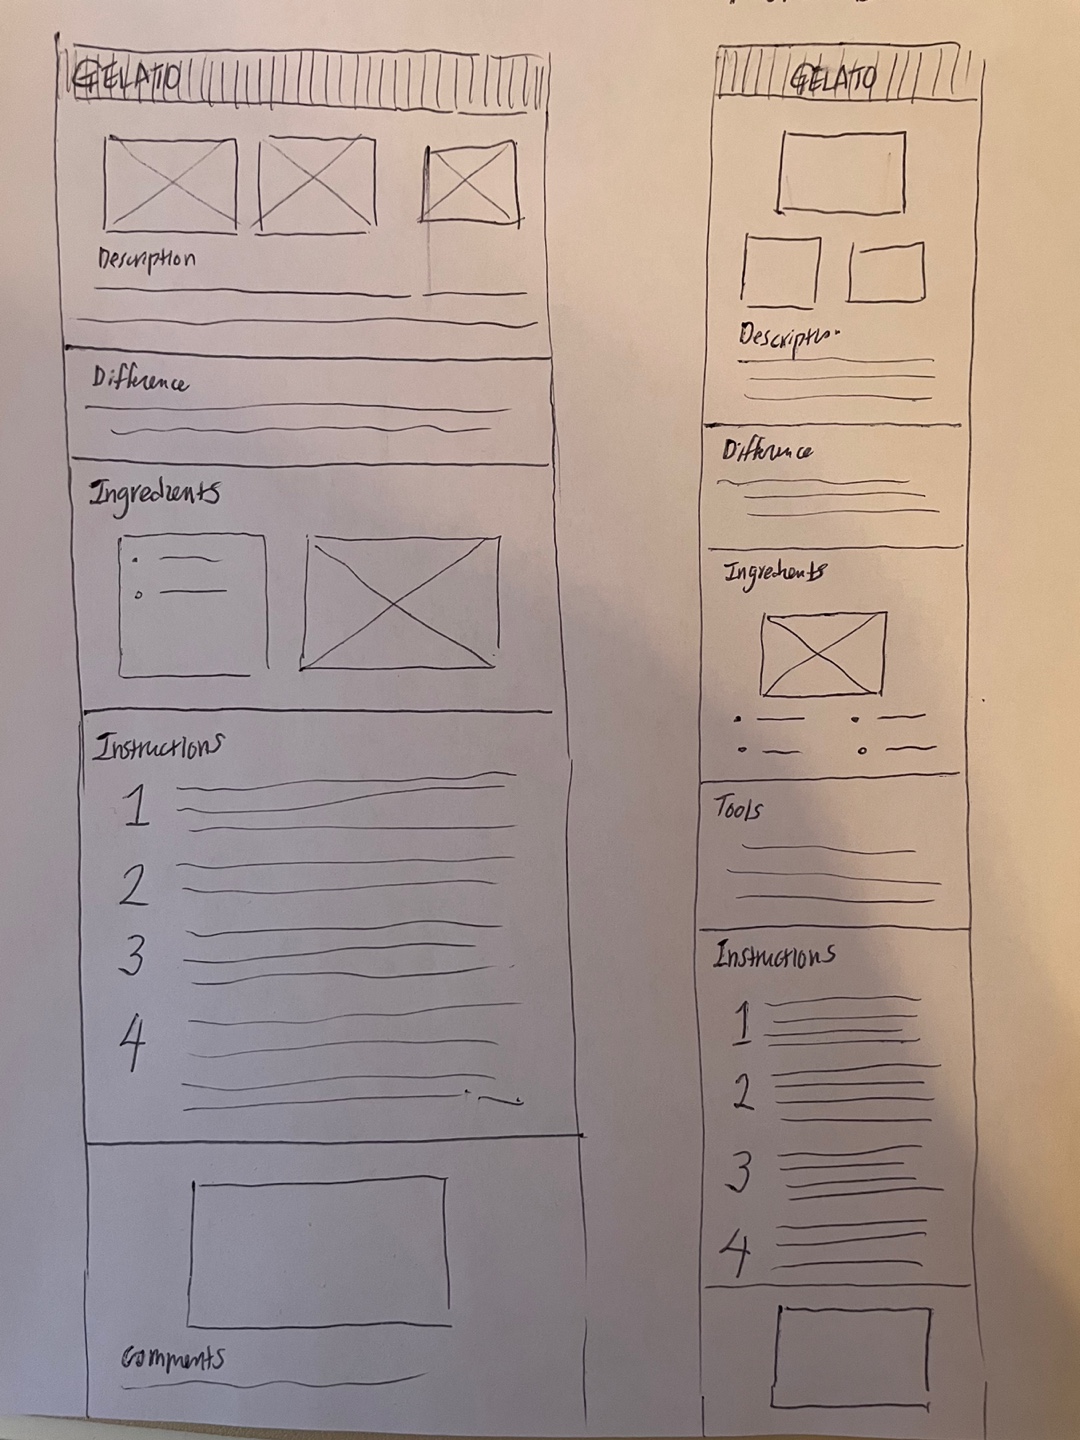 GELATO
Description
Difference
Ingredients
Instructions
1
2
3
4
Comments
GELATO
Description
Difference
Ingredients
Tools
Instructions
1
2
3
4